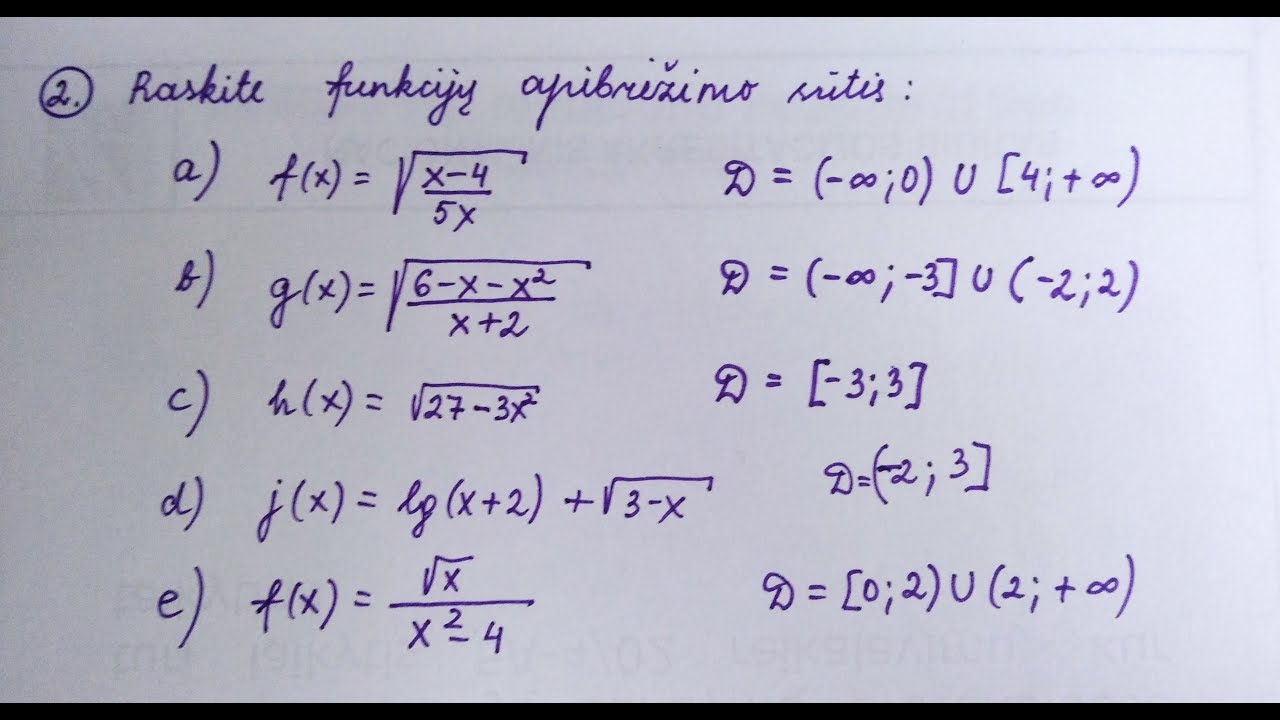 2. Raskite funkcijų apibrėžimo sritis:
a) f(x) = √((x-4)/(5x)) D = (-∞; 0) ∪ [4; +∞)
b) g(x) = √((6-x-x²)/(x+2)) D = (-∞; -3] ∪ (-2; 2)
c) h(x) = √(27-3x²) D = [-3; 3]
d) j(x) = lg(x+2) + √(3-x) D = (-2; 3]
e) f(x) = √x/(x²-4) D = [0; 2) ∪ (2; +∞)